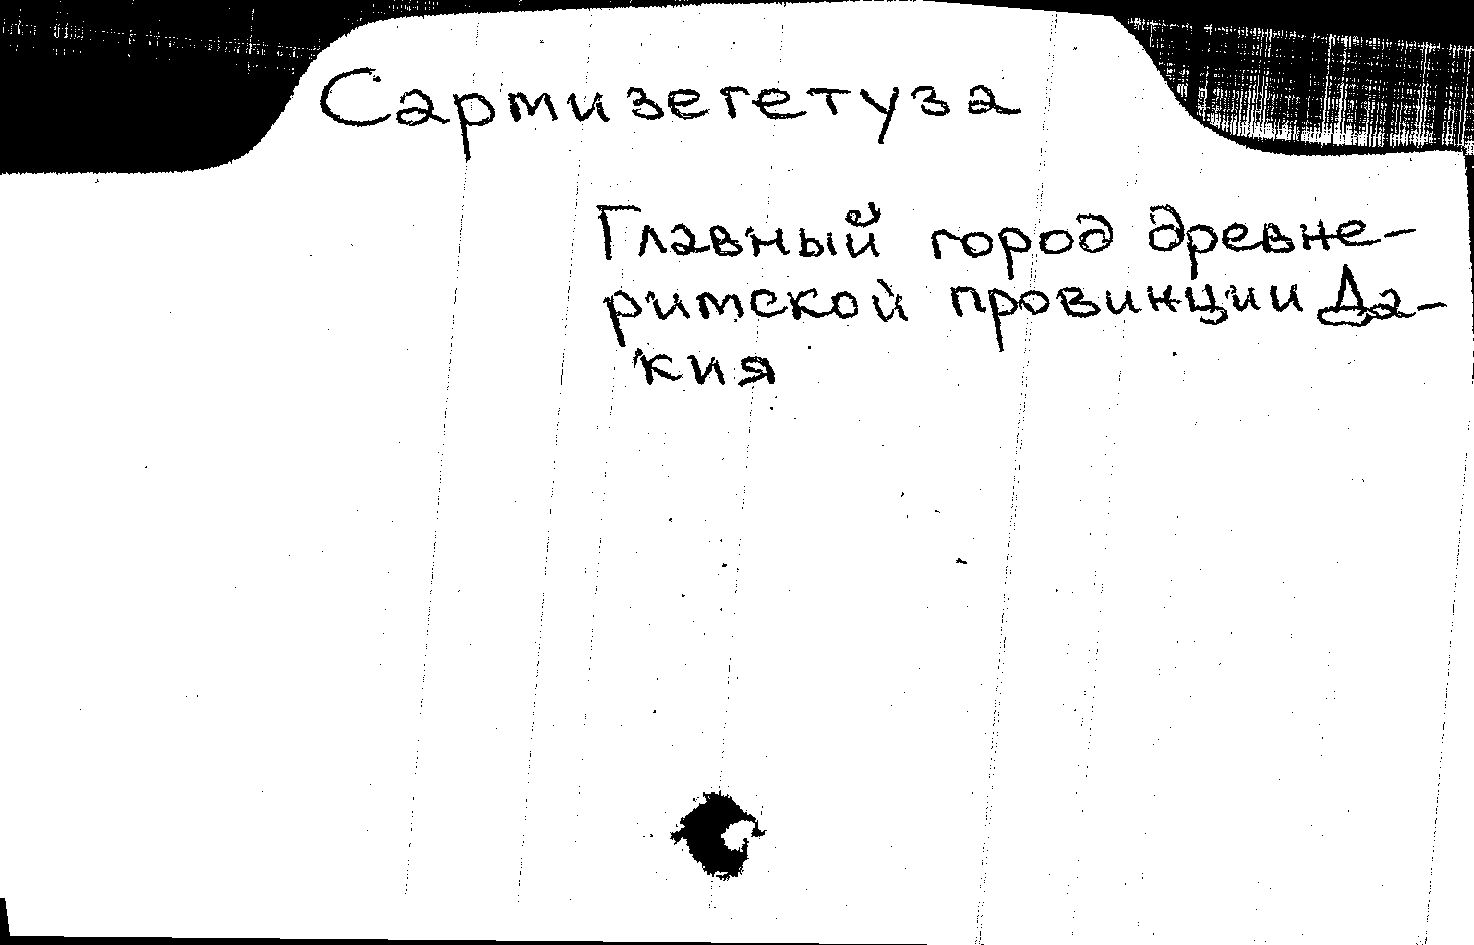 Сармизегетуза
Главный город древне-
римской провинции Да-
кия